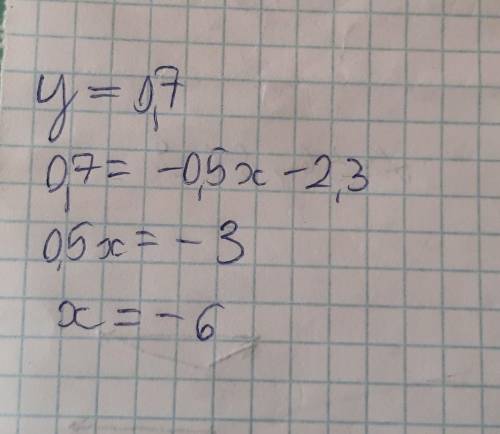 y = 0,7
0,7 = -0,5x - 2,3
0,5x = - 3
x = - 6